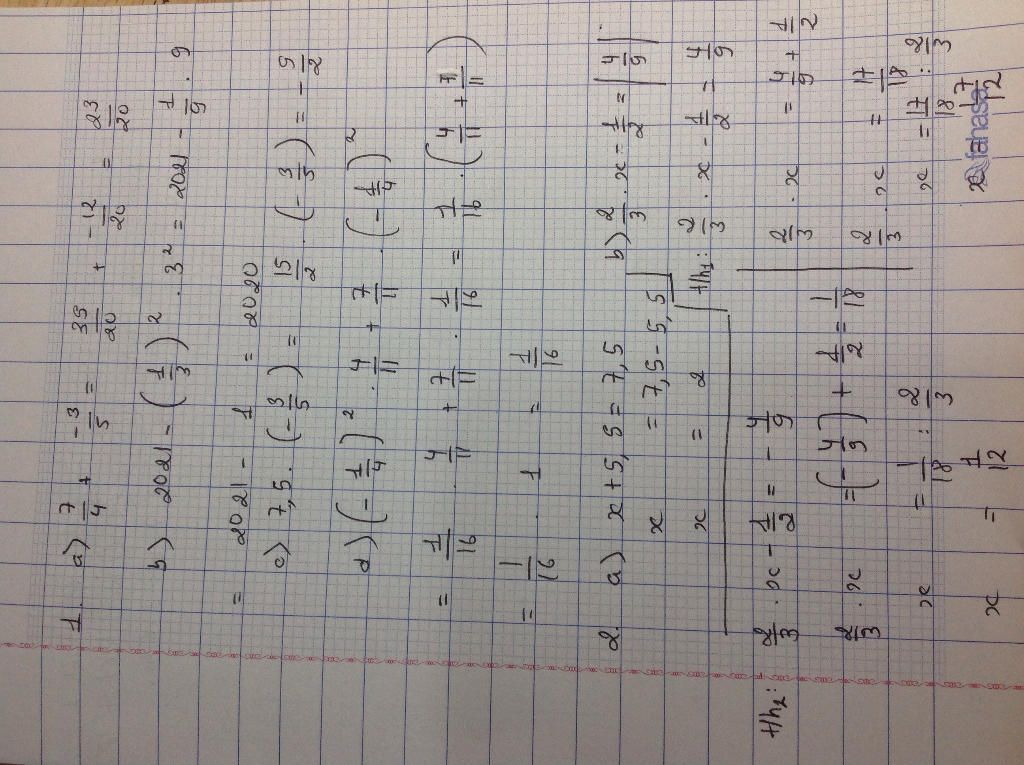 1. a) 7/4 + -3/5 = 35/20 + -12/20 = 23/20
b) 2021 - (1/3)² . 3² = 2021 - 1/9 . 9
= 2021 - 1 = 2020
c) 7,5 . (-3/5) = 15/2 . (-3/5) = -9/2
d) (-1/4)² . 4/11 + 7/11 . (-1/4)²
= 1/16 . 4/11 + 7/11 . 1/16 = 1/16 . (4/11 + 7/11)
= 1/16 . 1 = 1/16
2. a) x + 5,5 = 7,5
x = 7,5 - 5,5
x = 2
b) 2/3 . x - 1/2 = |4/9|
TH1: 2/3 . x - 1/2 = 4/9
2/3 . x = 4/9 + 1/2
2/3 . x = 17/18
x = 17/18 : 2/3
x = 17/12
TH2: 2/3 . x - 1/2 = -4/9
2/3 . x = (-4/9) + 1/2 = 1/18
x = 1/18 : 2/3
x = 1/12
fahasa